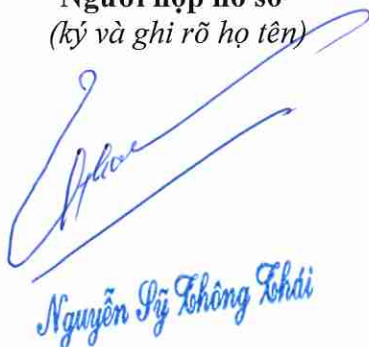 Người nộp hồ sơ
(ký và ghi rõ họ tên)
Nguyễn Sỹ Thông Thái